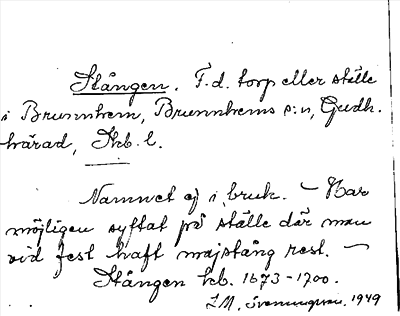 Stången. F.d. torp eller ställe
i Brunnhem, Brunnhems s:n, Gudh.
härad, Skb. l.
Namnet ej i bruk. — Har
möjligen syftat på ställe där man
vid fest haft majstång rest. —
Stången kb. 1673-1700.
J.M. Svenungsson. 1949